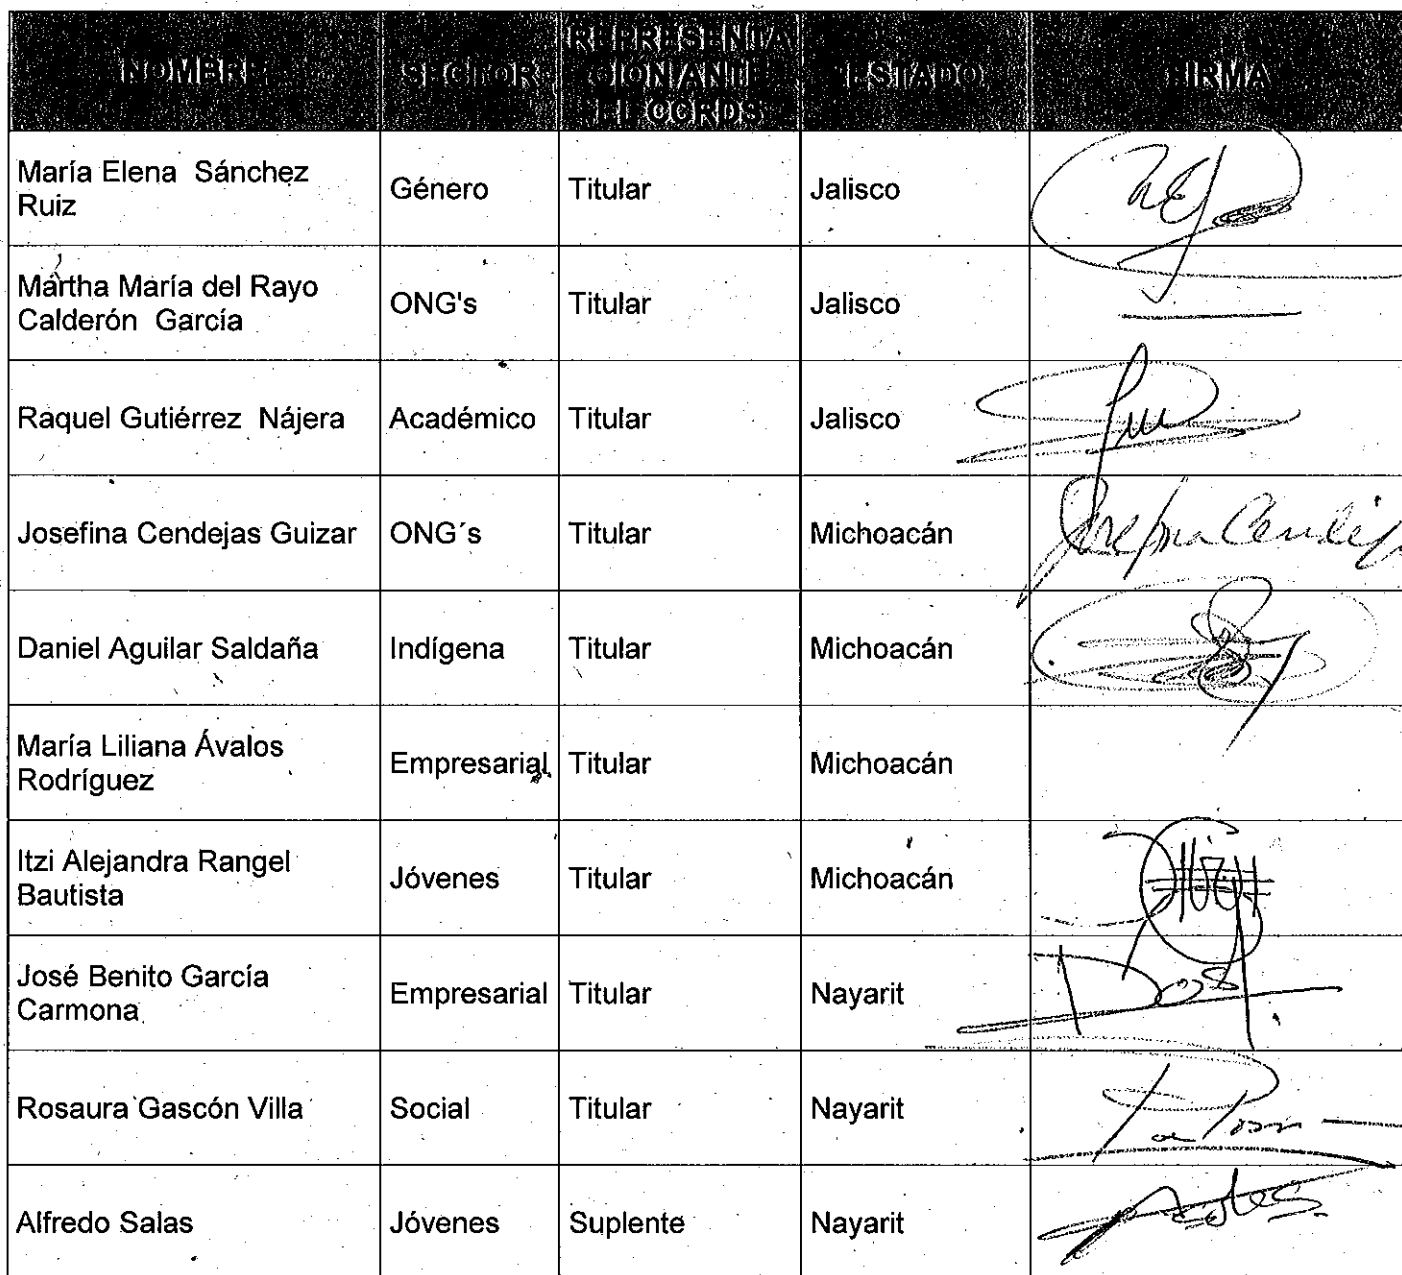 NOMBRE SECTOR REPRESENTA
CION ANTE
EL CCRDS ESTADO FIRMA
María Elena Sánchez
Ruiz Género Titular Jalisco
Martha María del Rayo
Calderón García ONG's Titular Jalisco
Raquel Gutiérrez Nájera Académico Titular Jalisco
Josefina Cendejas Guizar ONG´s Titular Michoacán Josefina Cendejas
Daniel Aguilar Saldaña Indígena Titular Michoacán
María Liliana Ávalos
Rodríguez Empresarial Titular Michoacán
Itzi Alejandra Rangel
Bautista Jóvenes Titular Michoacán
José Benito García
Carmona Empresarial Titular Nayarit
Rosaura Gascón Villa Social Titular Nayarit
Alfredo Salas Jóvenes Suplente Nayarit